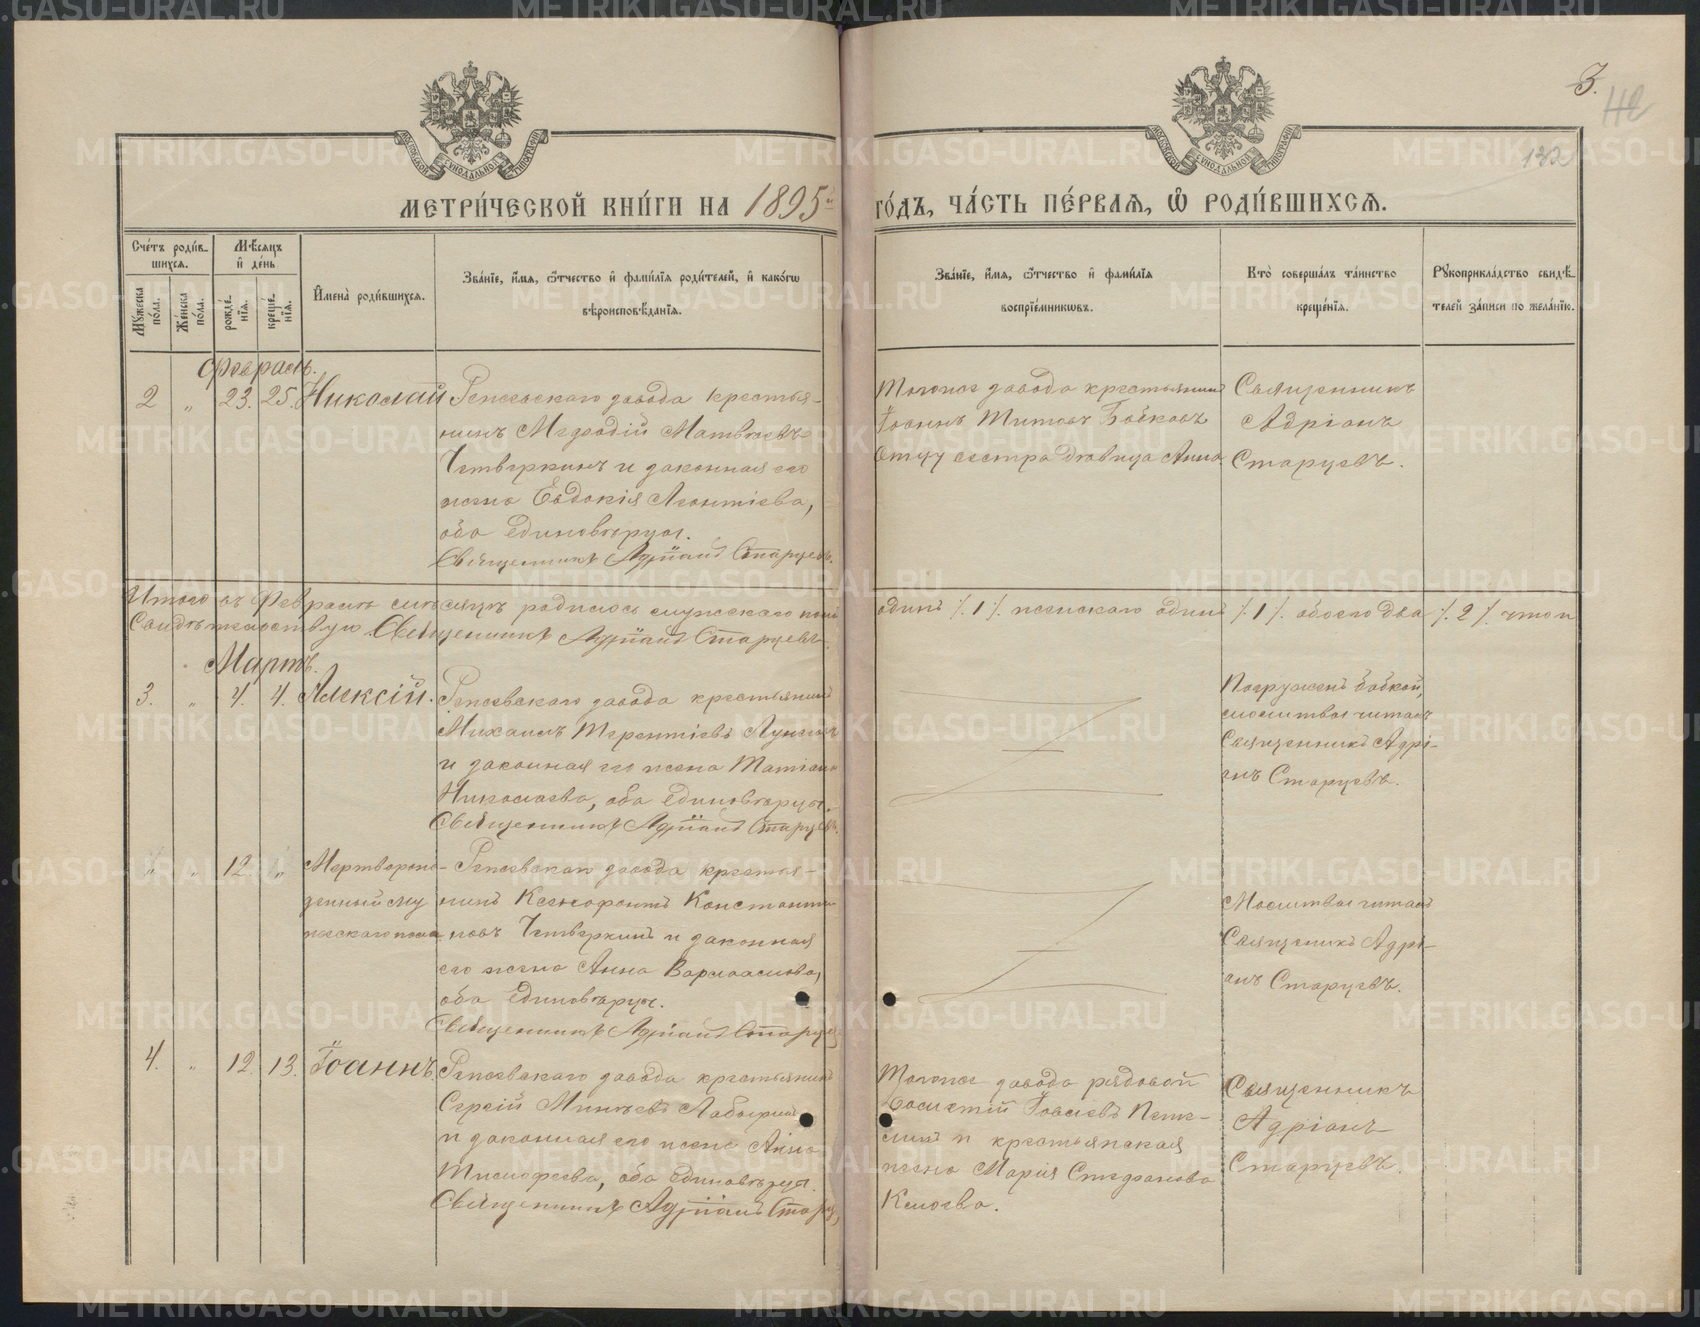 3.
132
МЕТРИ́ЧЕСКОЙ КНИ́ГИ НА 1895й ГО́ДЪ, ЧА́СТЬ ПЕ́РВАѦ, Ѡ҆ РОДИ́ВШИХСѦ.
Сче́тъ роди́вшихсѧ.
Мѣ́сѧцъ и҆ де́нь
Мꙋ́жеска по́ла.
Же́нска по́ла.
рожде́нїѧ.
креще́нїѧ.
И҆мена̀ роди́вшихсѧ.
Зва́нїе, и҆́мѧ, ѻ҆́тчество и҆ фами́лїѧ роди́телей, и҆ како́гѡ
вѣроисповѣ́данїѧ.
Зва́нїе, и҆́мѧ, ѻ҆́тчество и҆ фами́лїѧ
воспрїе́мникѡвъ.
Кто̀ соверша́лъ та́инство
креще́нїѧ.
Рꙋкоприкла́дство свидѣ́-
телей за́писи по жела́нїю.
Февраль.
2 " 23. 25. Николай
Режевскаго завода крестья-
нинъ Меѳодій Матвѣевъ
Четверкинъ и законная его
жена Евдокія Леонтіева,
оба единовѣрцы.
Священникъ Адріанъ Старцевъ.
Тогоже завода крестьянинъ
Іоаннъ Титовъ Бачковъ
Отцу сестра дѣвица Анна
Священникъ
Адріанъ
Старцевъ.
Итого въ Февралѣ мѣсяцѣ родилось мужескаго пола один /.1/. женскаго один /.1/. обоего два /.2/. что и
Свидѣтельствую Священникъ Адріанъ Старцевъ.
Мартъ.
3. " 4. 4. Алексій.
Режевскаго завода крестьянинъ
Михаилъ Терентіевъ
и законная его жена Татіана
Николаева, оба единовѣрцы.
Священникъ Адріанъ Старцевъ.
Погруженъ бабкой,
молитвы читалъ
Священникъ Адрі-
анъ Старцевъ.
" " 12. " Мертворож-
денный му
жескаго пола
Режевскаго завода крестья-
нинъ Ксенофонтъ Константи
новъ Четверкинъ и законная
его жена Анна Варлаамова,
оба единовѣрцы.
Священникъ Адріанъ Старцев
Молитвы читалъ
Священникъ Адрі-
анъ Старцевъ.
4. " 12. 13. Іоаннъ
Режевскаго завода крестьянинъ
Сергій Минѣевъ
и законная его жена Анна
Тимофеева, оба единовѣрцы.
Священникъ Адріанъ Старц
Тогоже завода рядовой
и крестьянская
жена Марія Стефанова
Священникъ
Адріанъ
Старцевъ.
METRIKI.GASO-URAL.RU